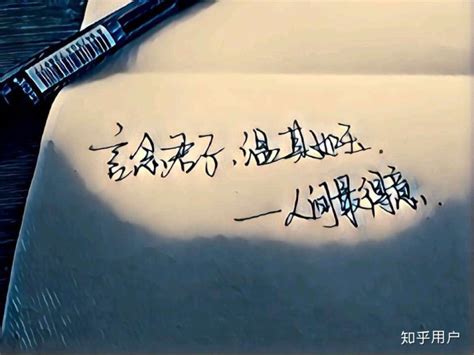 言念君子、温其如玉.
—人间最得意..
知乎用户